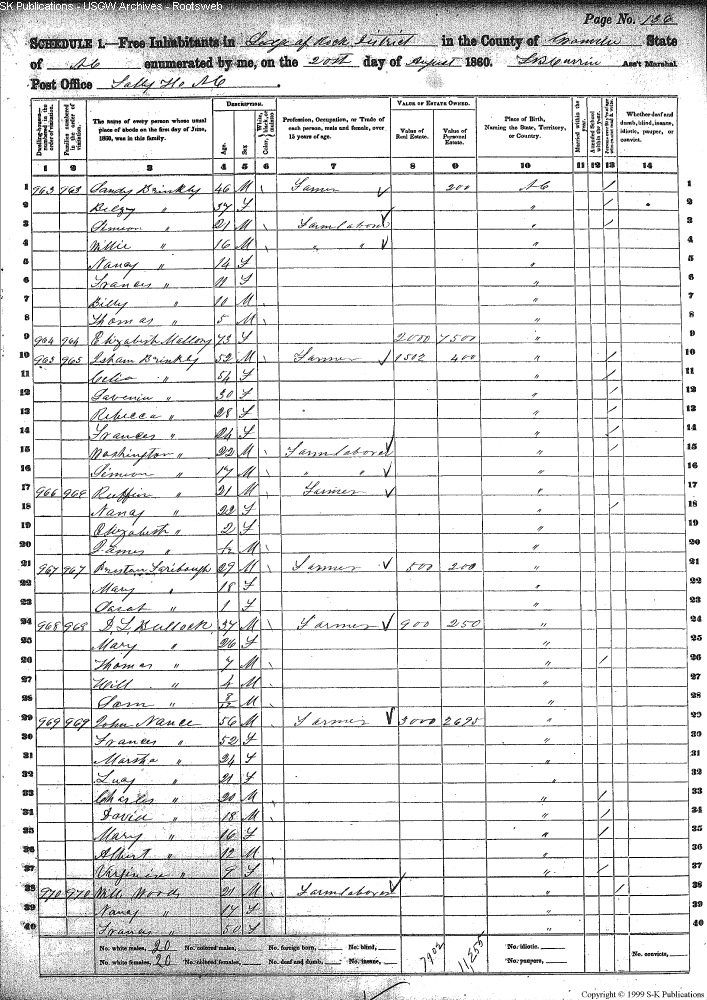 SK Publications - USGW Archives - Rootsweb
Page No. 126
SCHEDULE 1.—Free Inhabitants in District in the County of Granville State
of NC enumerated by me, on the 20th day of August 1860. Ass't Marshal
Post Office Sally Ho NC
Dwelling-houses—numbered in the order of visitation.
Families numbered in the order of visitation.
The name of every person whose usual place of abode on the first day of June, 1860, was in this family.
DESCRIPTION.
Age.
Sex.
Color, White, black, or mulatto
Profession, Occupation, or Trade of each person, male and female, over 15 years of age.
VALUE OF ESTATE OWNED.
Value of Real Estate.
Value of Personal Estate.
Place of Birth, Naming the State, Territory, or Country.
Married within the year.
Attended School within the year.
Whether deaf and dumb, blind, insane, idiotic, pauper, or convict.
1 2 3 4 5 6 7 8 9 10 11 12 13 14
1 963 963 Sandy Brinkly 46 M Farmer 200 NC / 1
2 Betsy " 37 F " / 2
3 Simeon " 21 M Farm laborer " / 3
4 Willie " 16 M " " " 4
5 Nancy " 14 F " 5
6 Frances " 11 F " 6
7 Billy " 10 M " 7
8 Thomas " 5 M " 8
9 964 964 Elizabeth Mallory 73 F 2000 7500 " 9
10 965 965 Isham Brinkly 52 M Farmer 1502 400 " / 10
11 Celia " 54 F " / 11
12 " 30 F " / 12
13 Rebecca " 28 F " / 13
14 Frances " 24 F " / 14
15 Washington " 22 M Farm laborer " / 15
16 Simeon " 17 M " " " 16
17 966 966 Ruffin " 21 M Farmer " 17
18 Nancy " 22 F " / 18
19 Elizabeth " 2 F " 19
20 James " M " 20
21 967 967 29 M Farmer 500 200 " 21
22 Mary " 18 F " 22
23 Sarah " 1 F " 23
24 968 968 D L Bullock 37 M Farmer 900 250 " 24
25 Mary " 26 F " 25
26 Thomas " 7 M " / 26
27 Will " 4 M " 27
28 Sam " M " 28
29 969 969 John Nance 56 M Farmer 3000 2695 " 29
30 Frances " 52 F " 30
31 Martha " 24 F " 31
32 Lucy " 21 F " 32
33 Charles " 20 M " / 33
34 David " 18 M " / 34
35 Mary " 16 F " / 35
36 Albert " 12 M " 36
37 Virginia " 9 F " / 37
38 970 970 Wm Woods 21 M Farm laborer / 38
39 Nancy " 17 F " 39
40 Frances " 50 F " 40
No. white males, 20 No. colored males, No. foreign born, No. blind, 7902 11,255 No. idiotic,
No. white females, 20 No. colored females, No. deaf and dumb, No. insane, No. paupers, No. convicts,
Copyright © 1999 S-K Publications